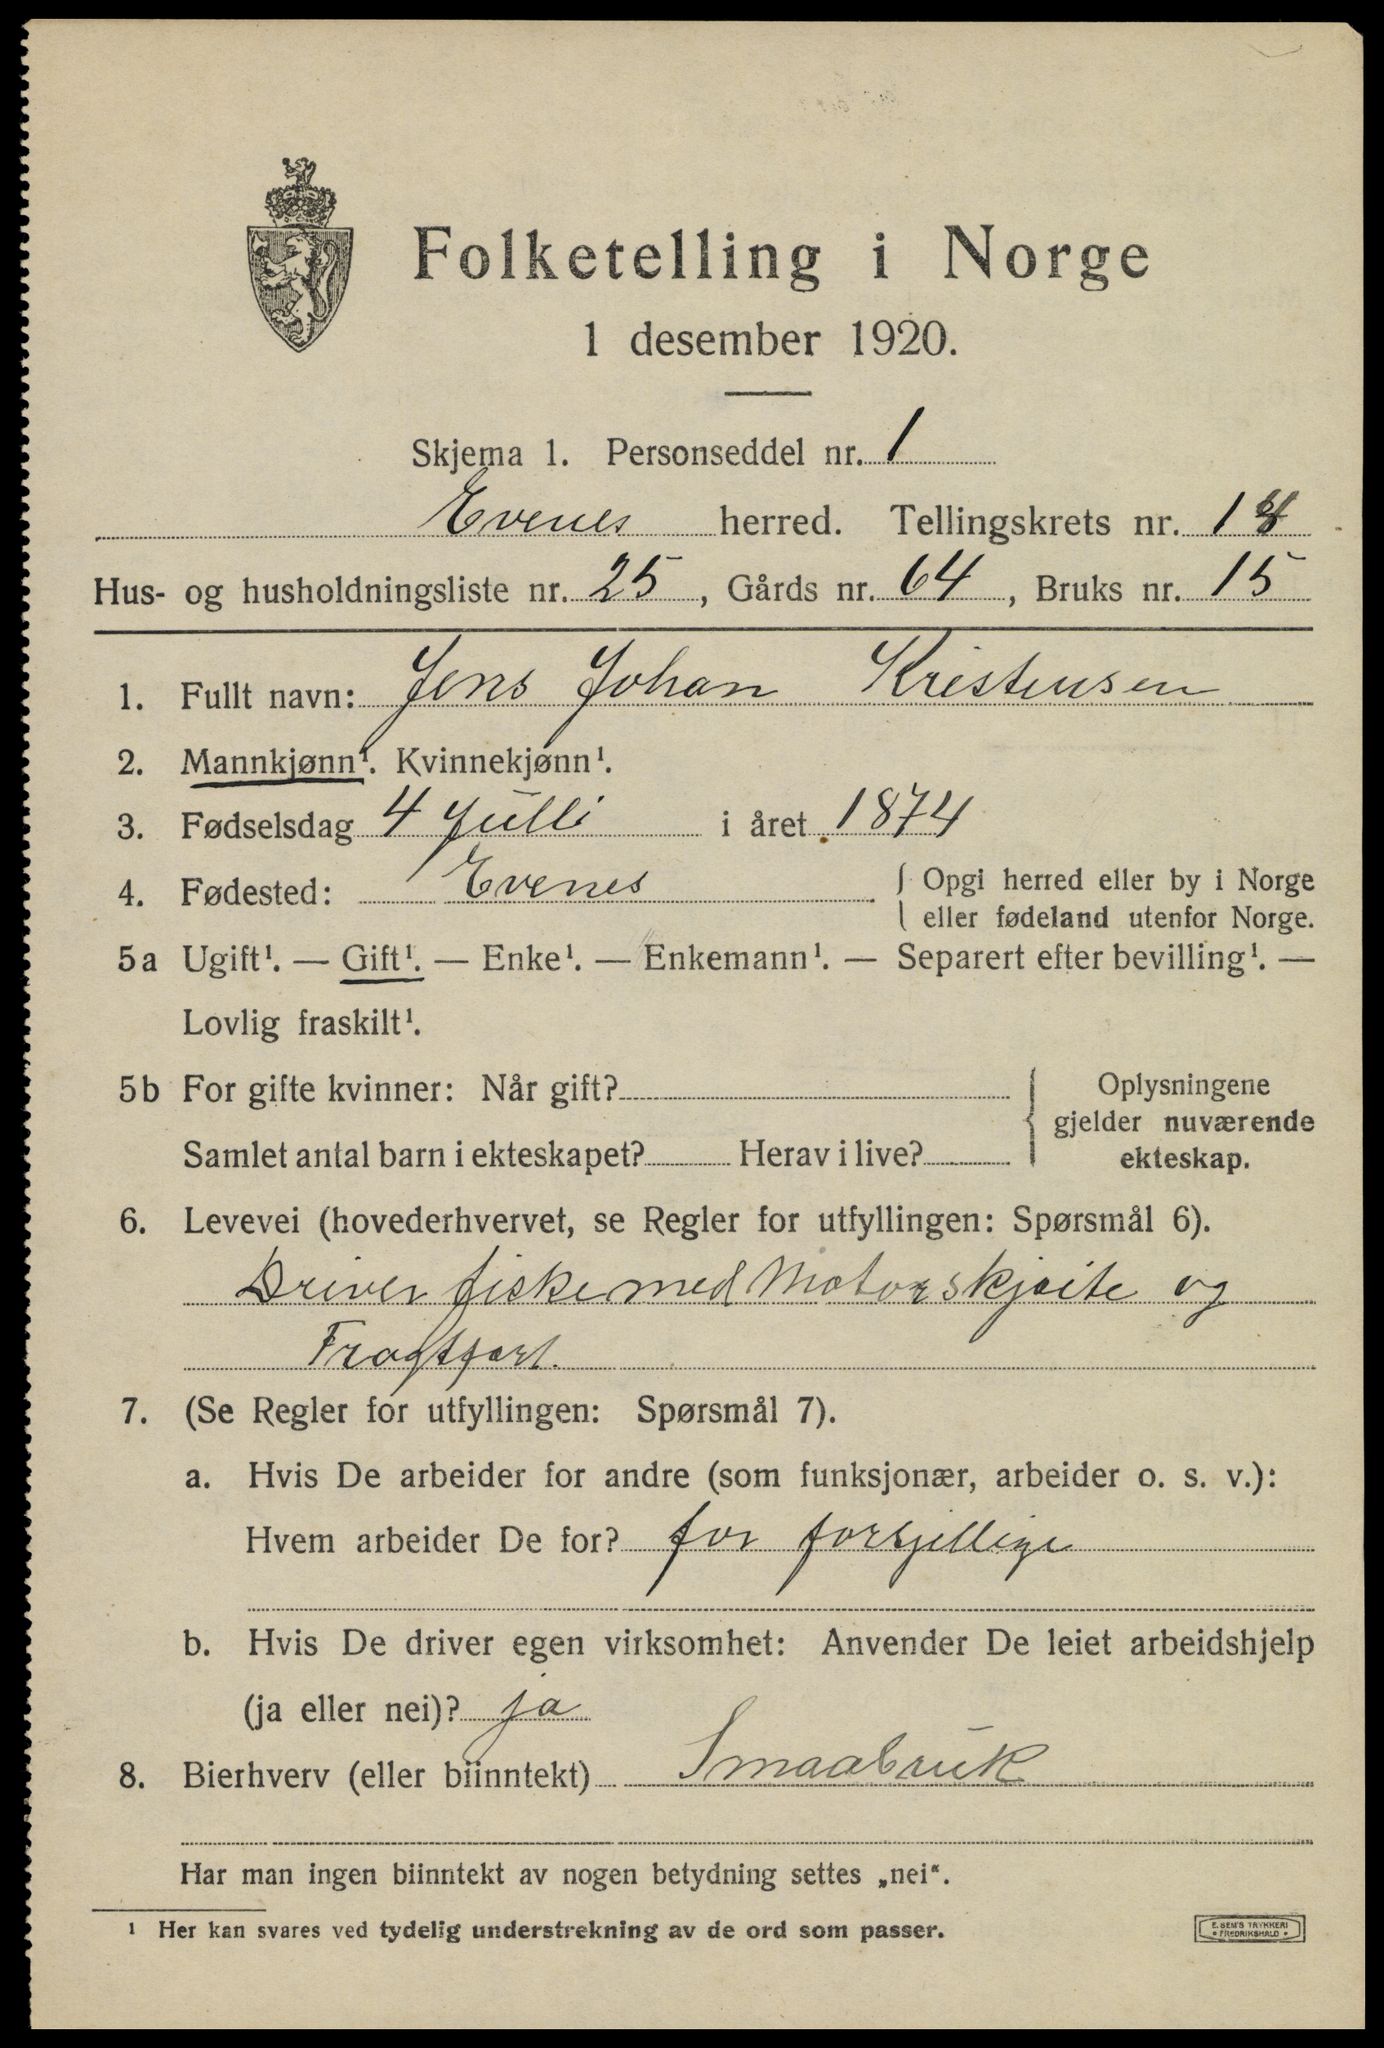 Folketelling i Norge
1 desember 1920.
Skjema 1. Personseddel nr. 1
Evenes herred. Tellingskrets nr. 1
Hus- og husholdningsliste nr. 25, Gårds nr. 64, Bruks nr. 15
1. Fullt navn: Jens Johan Kristensen
2. Mannkjønn¹. Kvinnekjønn¹.
3. Fødselsdag 4 Julli i året 1874
4. Fødested: Evenes { Opgi herred eller by i Norge
eller fødeland utenfor Norge.
5a Ugift¹. — Gift¹. — Enke¹. — Enkemann¹. — Separert efter bevilling¹. —
Lovlig fraskilt¹.
5b For gifte kvinner: Når gift? { Oplysningene
gjelder nuværende
Samlet antal barn i ekteskapet? Herav i live? ekteskap.
6. Levevei (hovederhvervet, se Regler for utfyllingen: Spørsmål 6).
Driver fiske med Motorskjøite og
Fragtfart.
7. (Se Regler for utfyllingen: Spørsmål 7).
a. Hvis De arbeider for andre (som funksjonær, arbeider o. s. v.):
Hvem arbeider De for? for forsjellige
b. Hvis De driver egen virksomhet: Anvender De leiet arbeidshjelp
(ja eller nei)? ja
8. Bierhverv (eller biinntekt) Smaabruk
Har man ingen biinntekt av nogen betydning settes „nei“.
¹ Her kan svares ved tydelig understrekning av de ord som passer.
E. SEM'S TRYKKERI
• FREDRIKSHALD •